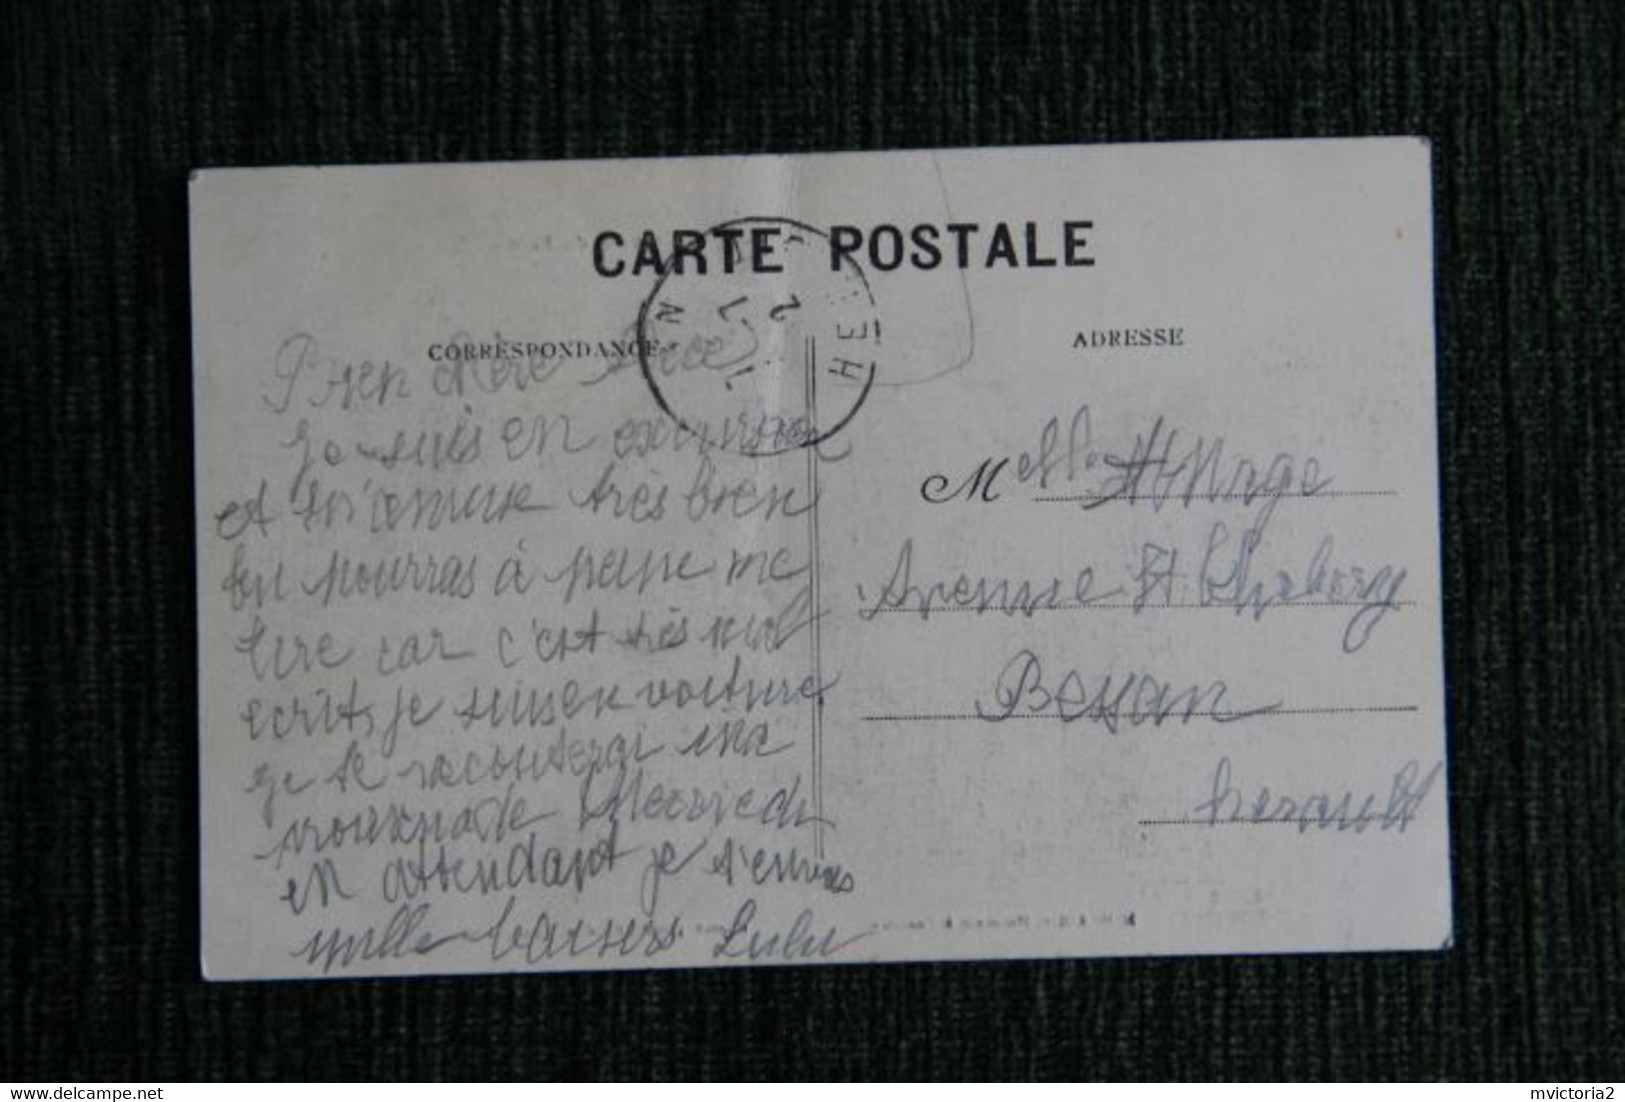 CARTE POSTALE
CORRESPONDANCE
ADRESSE
Bien chère
je suis en excursion
et m'amuse très bien
tu pourras à peine me
lire car c'est très mal
ecrit, je suis en voiture
je te raconterai ma
Mercredi
en attendant je t'envois
mille baisers Lulu
Melle
Avenue St
Bessan
herault
HE
www.delcampe.net
mvictoria2